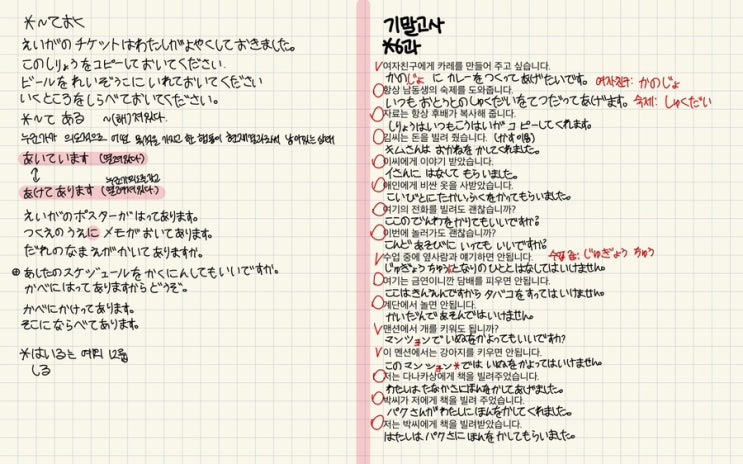 *~ておく
えいがのチケットはわたしがよやくしておきました。
このしりょうをコピーしておいてください.
ビールをれいぞうこにいれておいてください
いくところをしらべておいてください。
*~て ある ~(해)져있다.
누군가가 의도적으로 어떤 목적을 가지고 한 행동이 현재 남아있는 상태
あいています (열려있다)
↕
あけてあります
えいがのポスターがはってあります。
つくえのうえに メモがおいてあります
だれのなまえがかいてありますか。
あしたのスケジュールをかくにんしてもいいですか。
かべにはってありますからどうぞ。
かべにかけってあります。
そこにならべてあります。
*はいるは 예외 1그룹
しる
기말고사
*6과
여자친구에게 카레를 만들어 주고 싶습니다.
かのじょ に カレーをつくってあげたいです。 여자친구: かのじょ
항상 남동생의 숙제를 도와줍니다.
いつもおとうとのしゅくだいをてつだってあげます。 숙제: しゅくだい
자료는 항상 후배가 복사해 줍니다.
しりょうはいつもこうはいが コピーしてくれます。
김씨는 돈을 빌려 줬습니다.
キムさんは おかねをかしてくれました。
이씨에게 이야기 받았습니다.
イさんに はなして もらいました。
애인에게 비싼 옷을 사받았습니다.
こいびとにたかいふくをかってもらいました。
여기의 전화를 빌려도 괜찮습니까?
ここのでんわをかりてもいいですか?
이번에 놀러가도 괜찮습니까?
こんど あそびに いっても いいですか?
수업 중에 옆사람과 얘기하면 안됩니다. 수업중: じゅぎょう ちゅう
じゅぎょうちゅうにとなりのひととはなしてはいけません。
여기는 금연이니깐 담배를 피우면 안됩니다.
ここはきんえんですから タバコをすってはいけません。
계단에서 놀면 안됩니다.
かいだんであそんではいけません。
맨션에서 개를 키워도 됩니까?
マンションで いぬをかってもいいですか?
이 멘션에서는 강아지를 키우면 안됩니다.
このマンションでは いぬをかってはいけません。
저는 다나카상에게 책을 빌려주었습니다.
わたしはたなかさにほんをかしてあげました。
박씨가 저에게 책을 빌려 주었습니다.
パクさんがわたしにほんをかしてくれました。
저는 박씨에게 책을 빌려받았습니다.
はたしはパクさにほんをかしてもらいました。